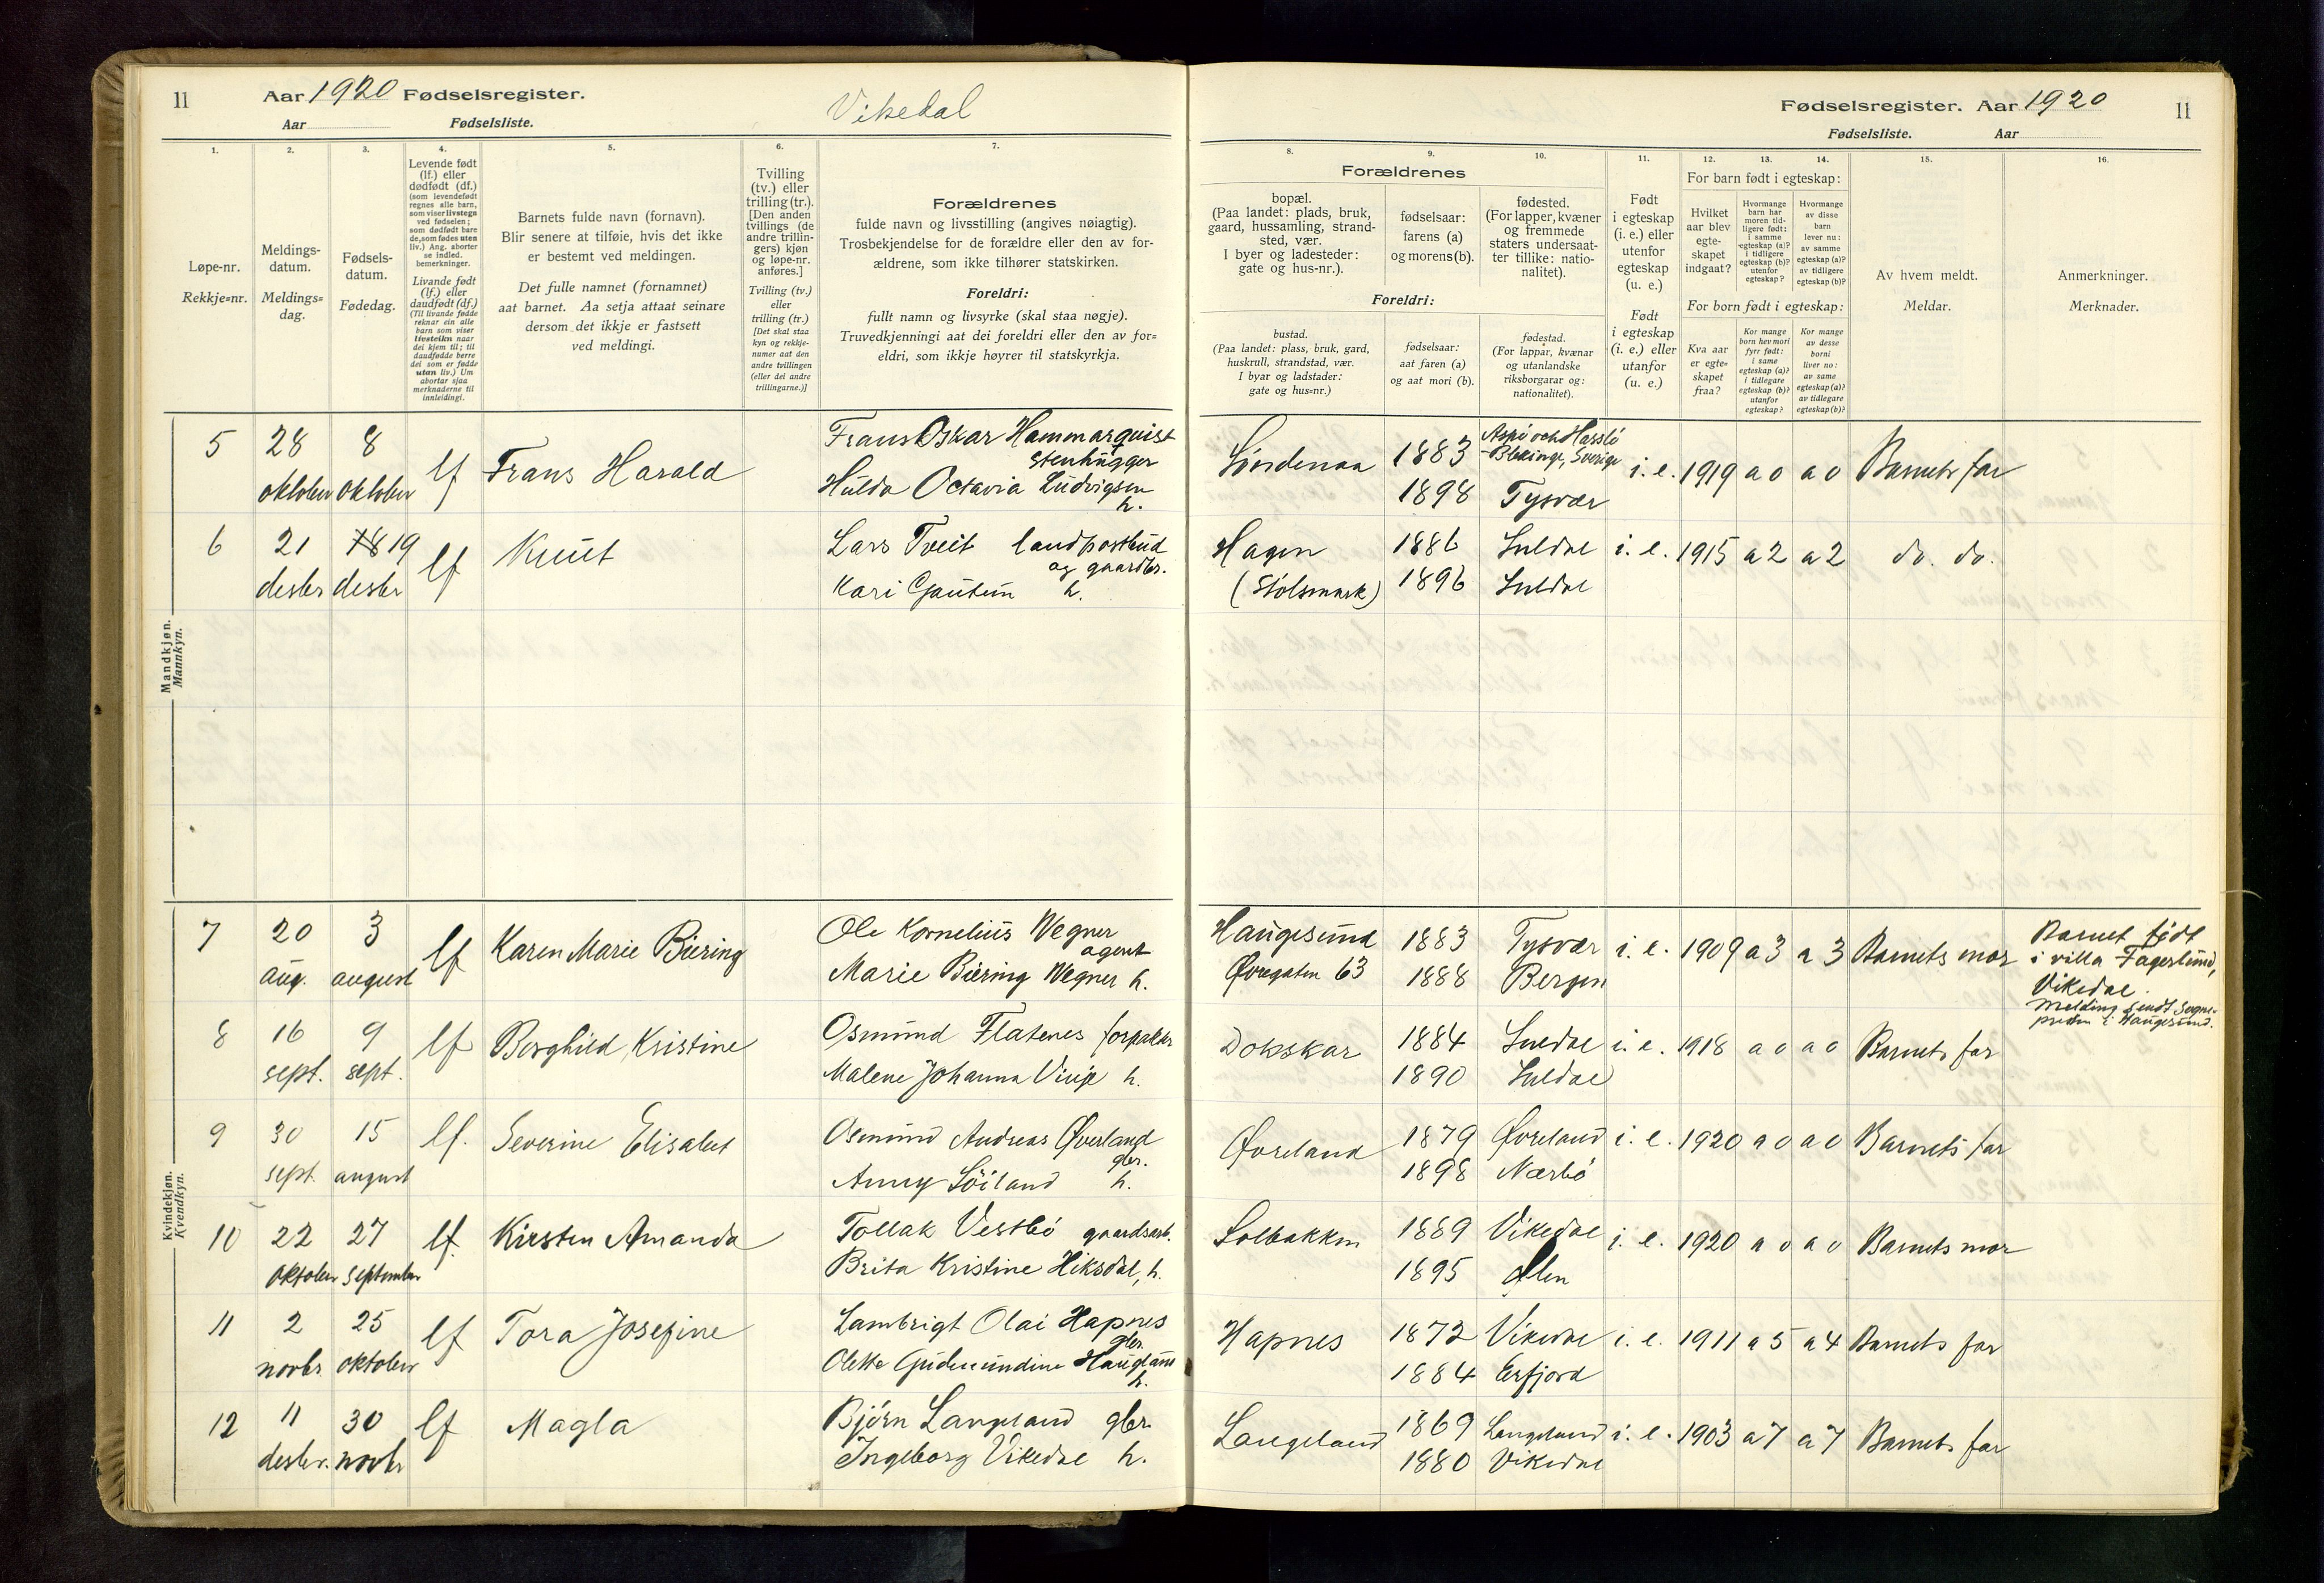 11 Aar 1920 Fødselsregister. Vikedal
Aar Fødselsliste.
1.
Løpe-nr.
Rekkje=nr.
2.
Meldings-
datum.
Meldings=
dag.
3.
Fødsels-
datum.
Fødedag.
4.
Levende født
(lf.) eller
dødfødt (df.)
(som levendefødt
regnes alle barn,
som viser livstegn
ved fødselen;
som dødfødt bare
de, som fødes uten
liv.) Ang. aborter
se indled.
bemerkninger.
Livande født
(lf.) eller
daudfødt (df.)
(Til livande fødde
reknar ein alle
barn som viser
livsteikn naar
dei kjem til; til
daudfødde berre
dei som er fødde
utan liv.) Um
abortar sjaa
merknaderne til
innleidingi.
5.
Barnets fulde navn (fornavn).
Blir senere at tilføie, hvis det ikke
er bestemt ved meldingen.
Det fulle namnet (fornamnet)
aat barnet. Aa setja attaat seinare
dersom det ikkje er fastsett
ved meldingi.
6.
Tvilling
(tv.) eller
trilling (tr.).
[Den anden
tvillings (de
andre trillin-
gers) kjøn
og løpe-nr.
anføres.]
Tvilling (tv.)
eller
trilling (tr.)
[Det skal staa
kyn og rekkje-
numer aat den
andre tvillingen
(eller dei andre
trillingarne.)]
7.
Forældrenes
fulde navn og livsstilling (angives nøiagtig).
Trosbekjendelse for de forældre eller den av for-
ældrene, som ikke tilhører statskirken.
Foreldri:
fullt namn og livsyrke (skal staa nøgje).
Truvedkjenningi aat dei foreldri eller den av for=
eldri, som ikkje høyrer til statskyrkja.
Mandkjøn.
Mannkyn.
5 28 oktober 8 oktober lf Frans Harald
Frans Oskar Hammarquist
stenhugger
Hulda Octavia Ludvigsen
h.
6 21 desbr 18 19 desbr lf Knut
Lars Tveit landpostbud
og gaardbr.
Kari Gautun h.
Kvindekjøn.
Kvendkyn.
7 20 aug. 3 august lf Karen Marie Biering
Ole Kornelius Wegner
agent
Marie Biering Wegner h.
8 16 sept. 9 sept. lf Borghild Kristine
Osmund Flatenes forpakter
Malene Johanna Vinje h.
9 30 sept. 15 august lf. Severine Elisabet
Osmund Andreas Øverland
gbr.
Anny Söiland h.
10 22 oktober 27 september lf. Kirsten Amanda
Tollak Vestbö gaardsarb.
Brita Kristine Hiksdal, h.
11 2 novbr. 25 oktober lf Tora Josefine
Lambrigt Olai Hapnes
gbr.
Olette Gudmundine Haugland
h.
12 11 desbr. 30 novbr lf Magla
Bjørn Langeland gbr.
Ingeborg Vikedal h.
Fødselsregister. Aar 1920 11
Fødselsliste. Aar
8.
Forældrenes
bopæl.
(Paa landet: plads, bruk,
gaard, hussamling, strand-
sted, vær.
I byer og ladesteder:
gate og hus-nr.).
Foreldri:
bustad.
(Paa landet: plass, bruk, gard,
huskrull, strandstad, vær.
I byar og ladstader:
gate og hus=nr.)
9.
fødselsaar:
farens (a)
og morens (b).
fødselsaar:
aat faren (a)
og aat mori (b).
10.
fødested.
(For lapper, kvæner
og fremmede
staters undersaat-
ter tillike: natio-
nalitet).
fødestad.
(For lappar, kvænar
og utanlandske
riksborgarar og:
nationalitet).
11.
Født
i egteskap
(i. e.) eller
utenfor
egteskap
(u. e.)
Født
i egteskap
(i. e.) eller
utanfor
(u. e.)
For barn født i egteskap:
12.
Hvilket
aar blev
egte-
skapet
indgaat?
13.
Hvormange
barn har
moren tid-
ligere født:
i samme
egteskap (a)?
i tidligere
egteskap (b)?
utenfor
egteskap?
14.
Hvormange
av disse
barn
lever nu:
av samme
egteskap (a)?
av tidligere
egteskap (b)?
For born født i egteskap:
Kva aar
er egte-
skapet
fraa?
Kor mange
born hev mori
fyrr født:
i same
egteskap (a)?
i tidlegare
egteskap (b)?
utanfor
egteskap?
Kor mange
av desse
borni
liver no:
av same
egteskap (a)?
av tidlegare
egteskap (b)?
15.
Av hvem meldt.
Meldar.
16.
Anmerkninger.
Merknader.
Söndenaa 1883 Aspö och Hasslö
Blekinge, Sverige i. e. 1919 a 0 a 0 Barnets far
1898 Tysvær
Hagen 1886 Suldal i. e. 1915 a 2 a 2 do. do.
(Stölsmark) 1896 Suldal
Haugesund 1883 Tysvær i. e. 1909 a 3 a 3 Barnets mor
Øvregaten 63 1888 Bergen
Barnet född
i villa Fagerlund,
Vikedal.
Melding sendt sogne-
presten i Haugesund.
Dokskar 1884 Suldal i. e. 1918 a 0 a 0 Barnets far
1890 Suldal
Øvreland 1879 Øvreland i. e. 1920 a 0 a 0 Barnets far
1898 Nærbö
Solbakken 1889 Vikedal i. e. 1920 a 0 a 0 Barnets mor
1895 Ølen
Hapnes 1872 Vikedal i. e. 1911 a 5 a 4 Barnets far
1884 Erfjord
Langeland 1869 Langeland i. e. 1903 a 7 a 7 Barnets far
1880 Vikedal